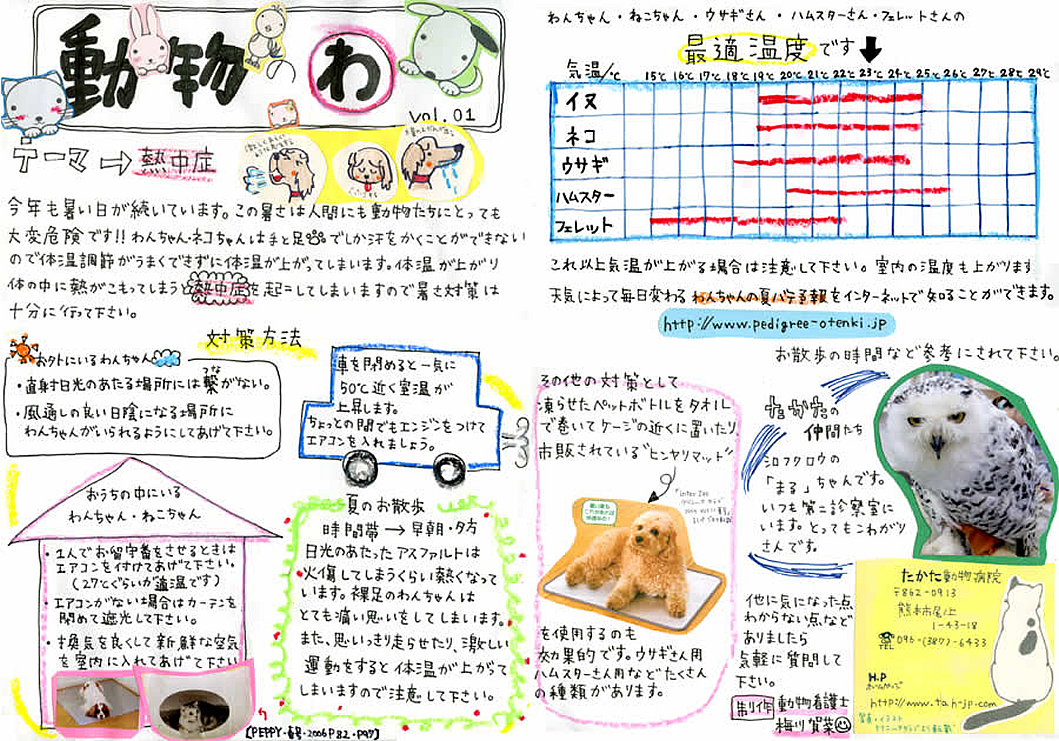 動物 わ
vol.01
テーマ→熱中症
今年も暑い日が続いています。この暑さは人間にも動物たちにとっても
大変危険です!!わんちゃん・ネコちゃんは手と足でしか汗をかくことができない
ので体温調節がうまくできずに体温が上がってしまいます。体温が上がり
体の中に熱がこもってしまうと熱中症を起こしてしまいますので暑さ対策は
十分に行って下さい。
対策方法
お外にいるわんちゃん
・直射日光のあたる場所には繋がない。
つな
・風通しの良い日陰になる場所に
わんちゃんがいられるようにしてあげて下さい。
車を閉めると一気に
50℃近く室温が
上昇します。
ちょっとの間でもエンジンをつけて
エアコンを入れましょう。
おうちの中にいる
わんちゃん・ねこちゃん
・1人でお留守番をさせるときは
エアコンを付けてあげて下さい。
(27℃ぐらいが適温です)
・エアコンがない場合はカーテンを
閉めて遮光して下さい。
・換気を良くして新鮮な空気
を室内に入れてあげて下さい
夏のお散歩
時間帯→早朝・夕方
日光のあたったアスファルトは
火傷してしまうくらい熱くなって
います。裸足のわんちゃんは
とても痛い思いをしてしまいます。
また、思いっきり走らせたり、激しい
運動をすると体温が上がって
しまいますので注意して下さい。
【PEPPY・春号・2006 P82・P97】
わんちゃん・ねこちゃん・ウサギさん・ハムスターさん・フェレットさんの
最適温度です
気温/℃ 15℃ 16℃ 17℃ 18℃ 19℃ 20℃ 21℃ 22℃ 23℃ 24℃ 25℃ 26℃ 27℃ 28℃ 29℃
イヌ
ネコ
ウサギ
ハムスター
フェレット
これ以上気温が上がる場合は注意して下さい。室内の温度も上がります
天気によって毎日変わるわんちゃんの夏バテ予報をインターネットで知ることができます。
http://www.pedigree-otenki.jp
お散歩の時間など参考にされて下さい。
その他の対策として
凍らせたペットボトルをタオル
で巻いてケージの近くに置いたり、
市販されている"ヒンヤリマット"
を使用するのも
効果的です。ウサギさん用
ハムスターさん用などたくさん
の種類があります。
たかたの
仲間たち
シロフクロウの
「まる」ちゃんです。
いつも第二診察室に
います。とってもこわがり
さんです。
他に気になった点
わからない点など
ありましたら
気軽に質問して
下さい。
制作 動物看護士
梅川賀菜
たかた動物病院
〒862-0913
熊本市尾上
1-43-18
096-(387)-6433
H.P
ホームページ
http://www.tah-jp.com